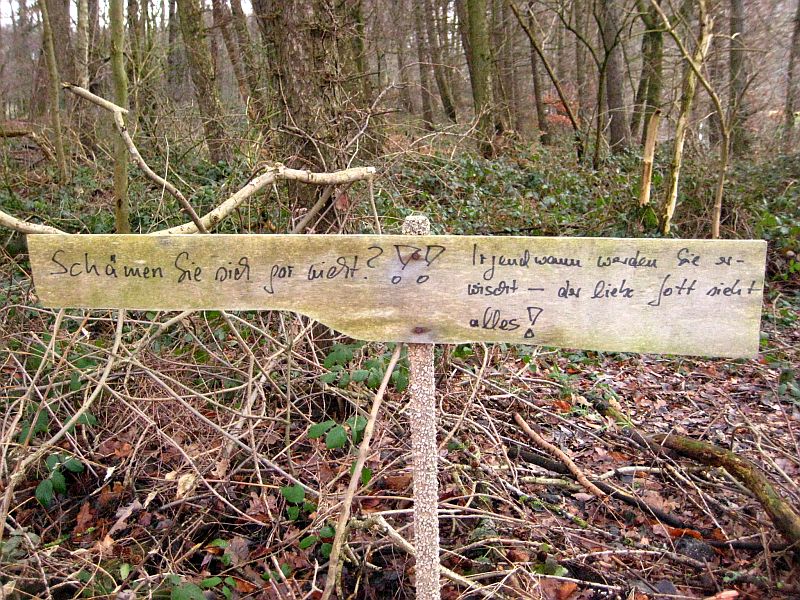 Schämen Sie sich gar nicht? !!
Irgendwann werden Sie er-
wischt – der liebe Gott sieht
alles!